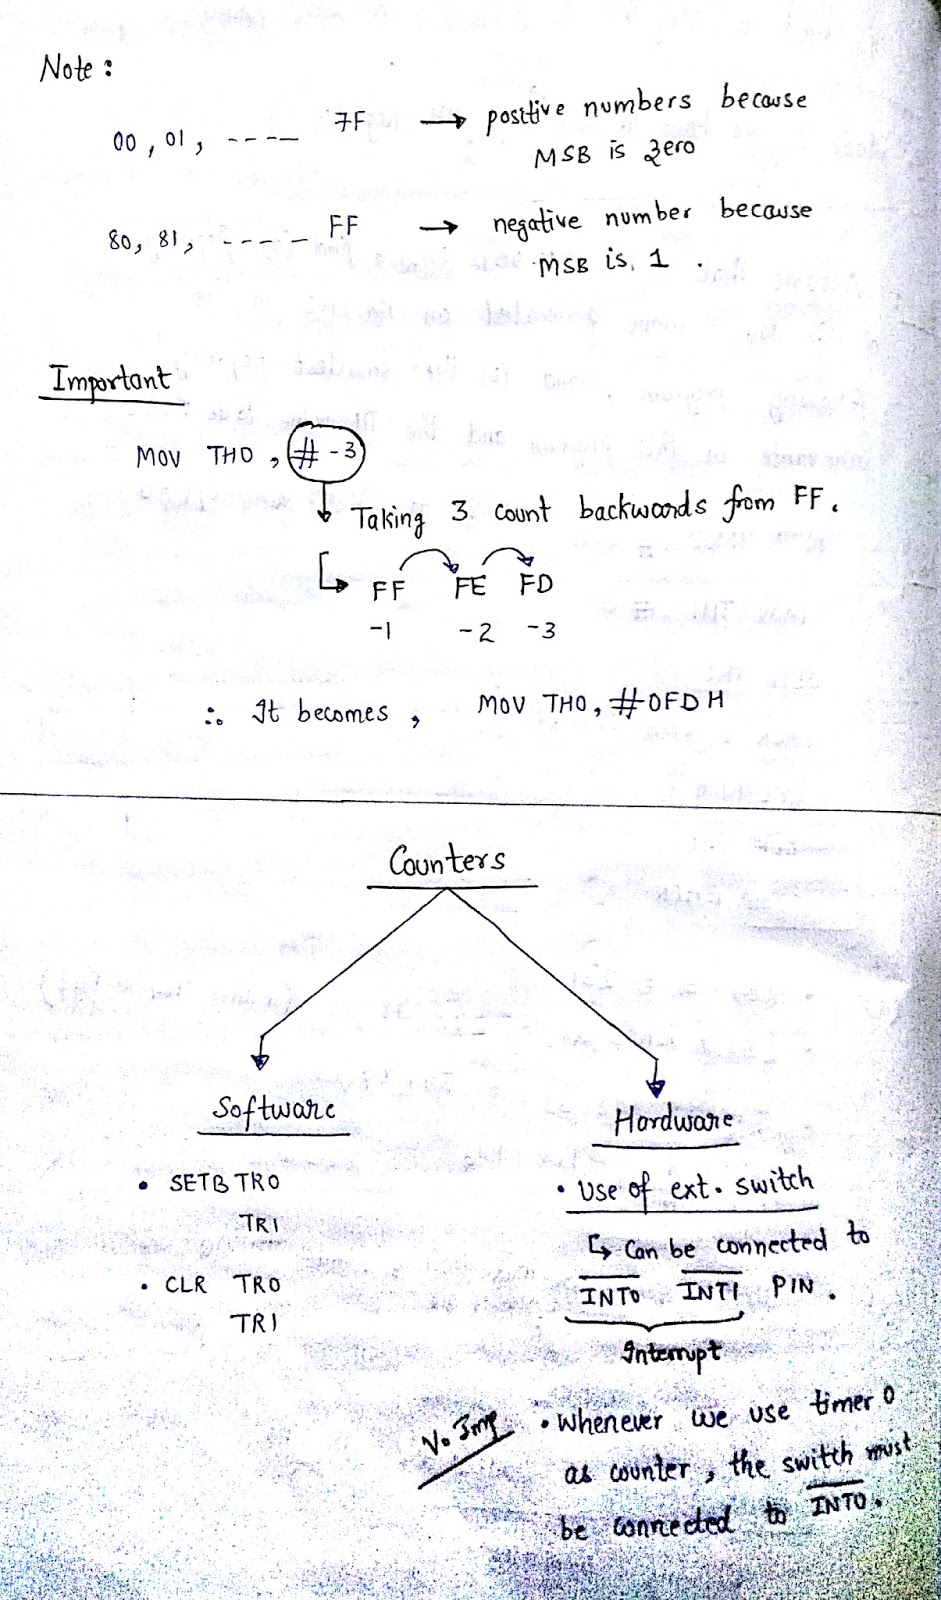 Note :
00, 01, ---- 7F → positive numbers because
MSB is zero
80, 81, ---- FF → negative number because
MSB is 1 .
Important
MOV TH0, # -3
Taking 3 count backwards from FF.
FF FE FD
-1 -2 -3
∴ It becomes, MOV TH0, #0FDH
Counters
Software
Hardware
• SETB TR0
TR1
• CLR TR0
TR1
• Use of ext. switch
↳ Can be connected to
I̅N̅T̅0̅ I̅N̅T̅1̅ PIN.
Interrupt
V. Imp
• Whenever we use timer 0
as counter, the switch must
be connected to I̅N̅T̅0̅.